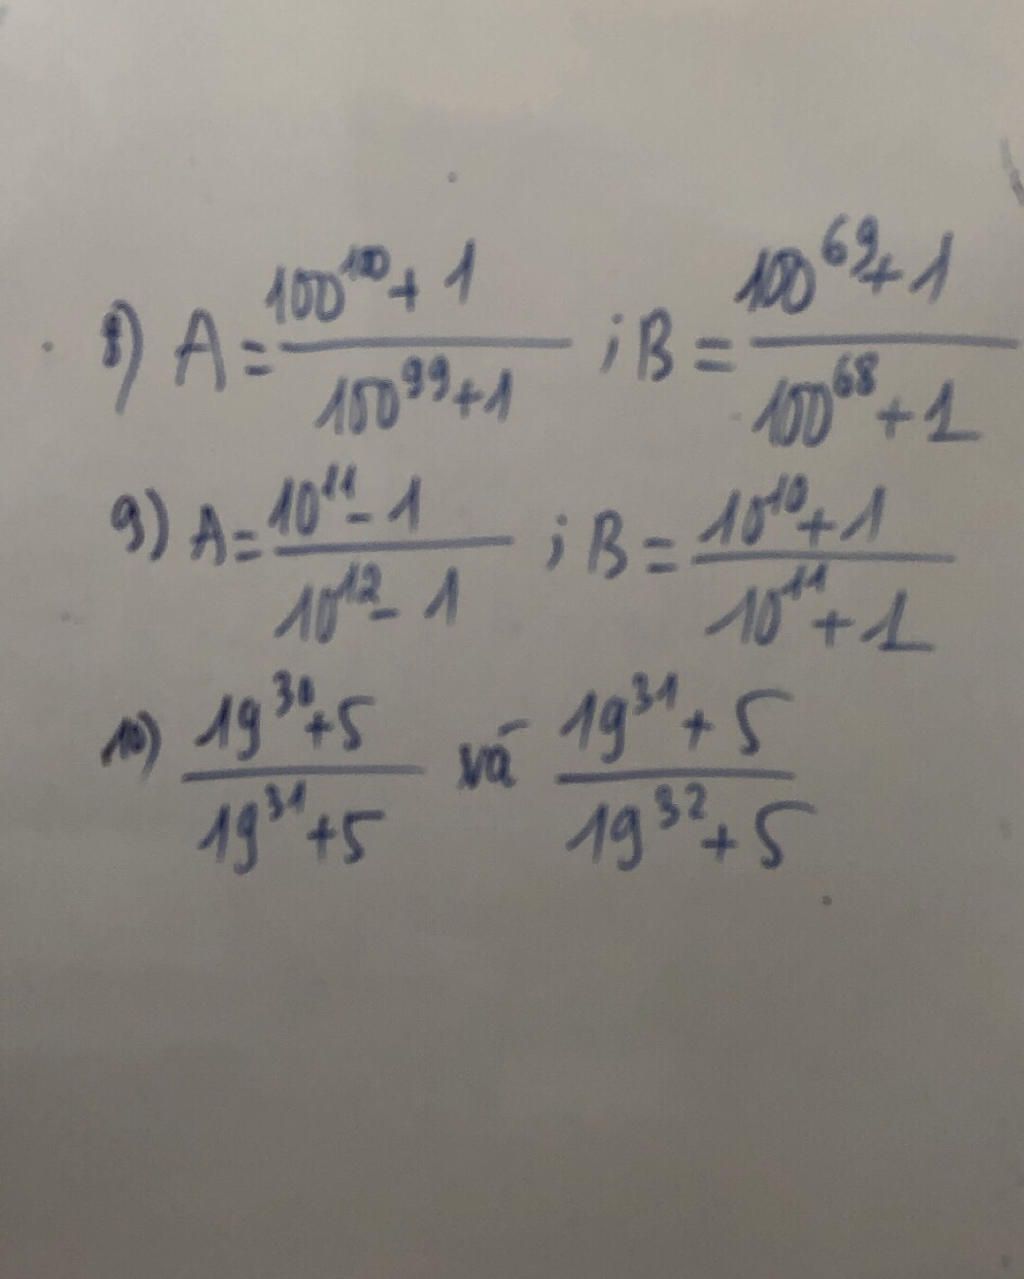 8) A = (100^100 + 1)/(100^99 + 1) ; B = (100^69 + 1)/(100^68 + 1)
9) A = (10^11 - 1)/(10^12 - 1) ; B = (10^10 + 1)/(10^11 + 1)
10) (19^30 + 5)/(19^31 + 5) và (19^31 + 5)/(19^32 + 5)